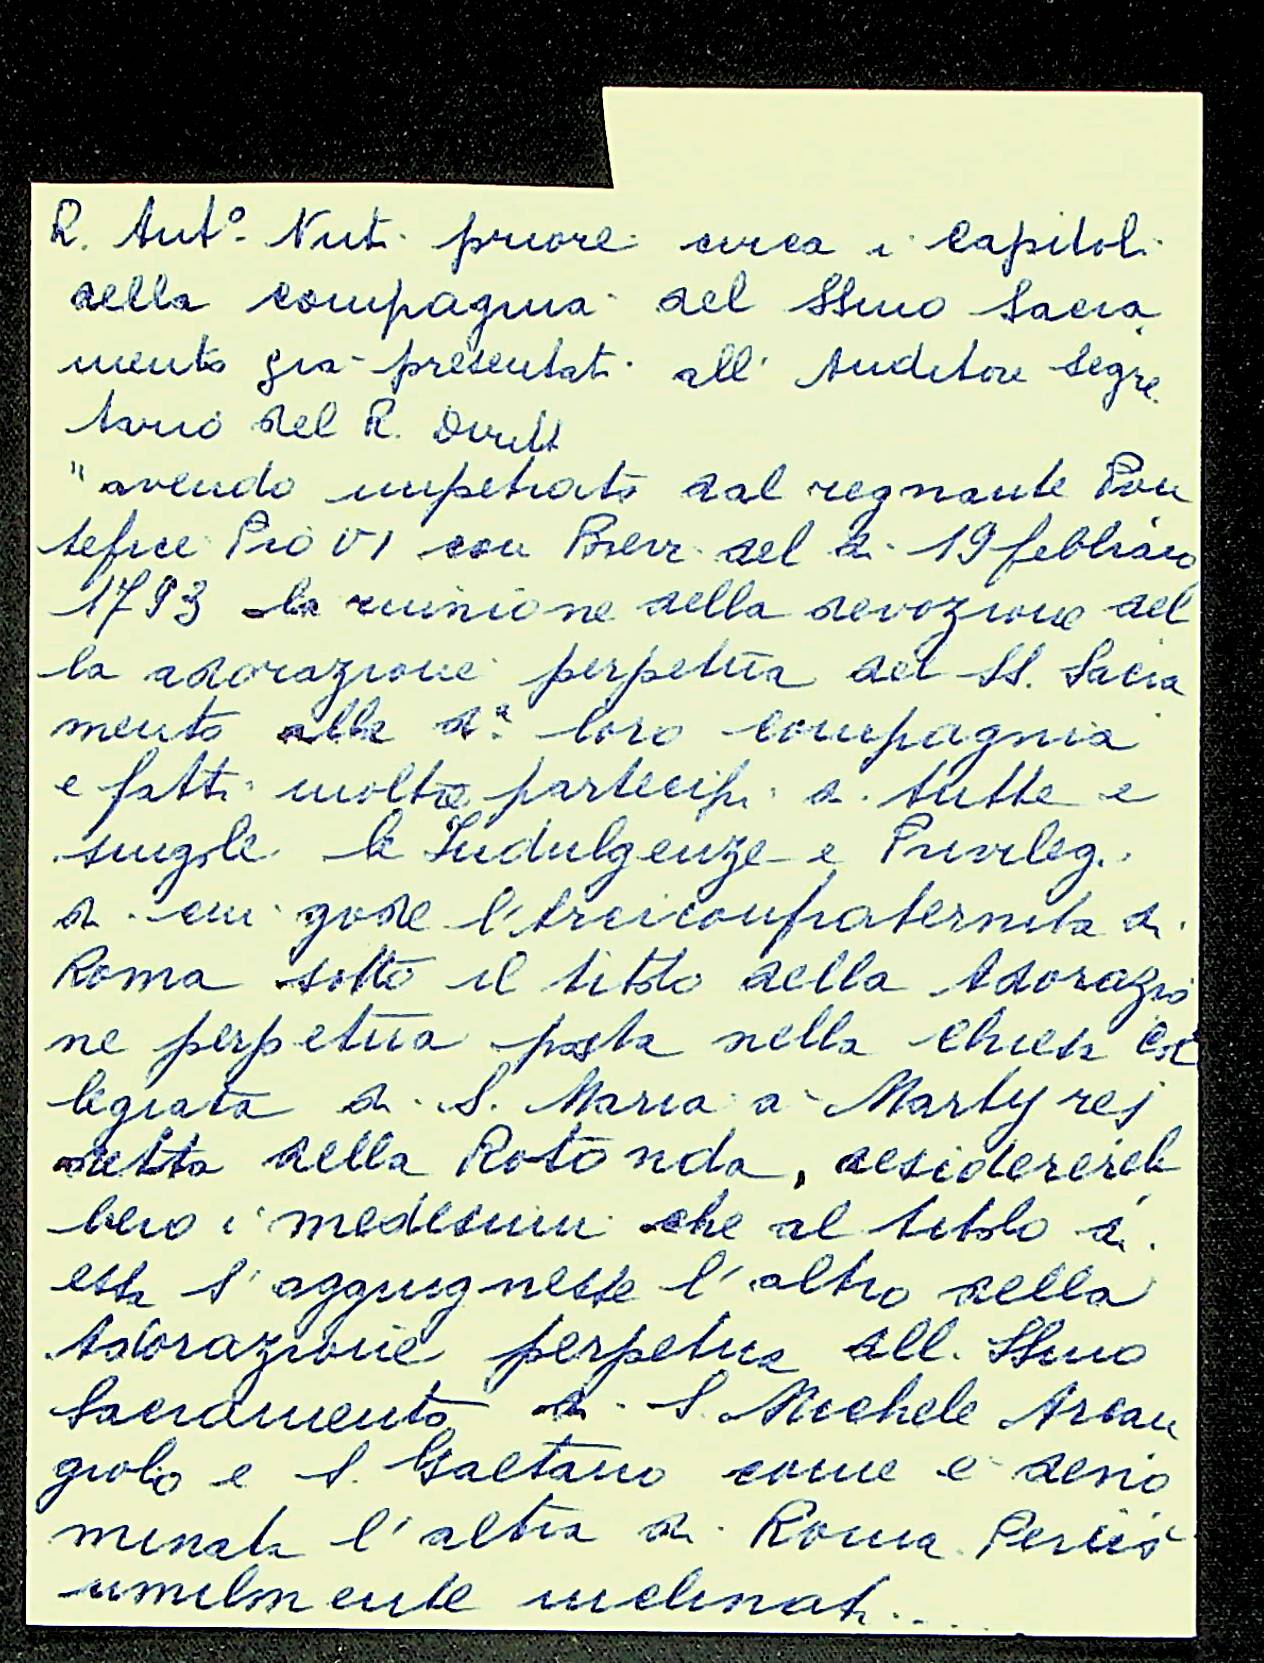 R. Ant.º Nuti priore circa i Capitoli
della compagnia del SSmo Sacra
mento già presentati all' Auditore Segre
tario del R. Diritt
"avendo impetrato dal regnante Pon
tefice Pio VI con Breve del dì 19 febbraio
1793 la riunione della devozione del
la adorazione perpetua del SS. Sacra
mento alla d.ª loro compagnia
e fatti inoltre partecipi di tutte e
singole le Indulgenze e Privilegi
di cui gode l'Arciconfraternita di
Roma sotto il titolo della Adorazio
ne perpetua posta nella Chiesa Col
legiata di S. Maria a Martyres
detta della Rotonda, desidereréb
bero i medesimi che al titolo di
essa s'aggiugnesse l'altro della
Adorazione perpetua del SSmo
Sacramento di S. Michele Arcan
giolo e S. Gaetano come è deno
minata l'altra di Roma. Perciò
umilmente inclinati...